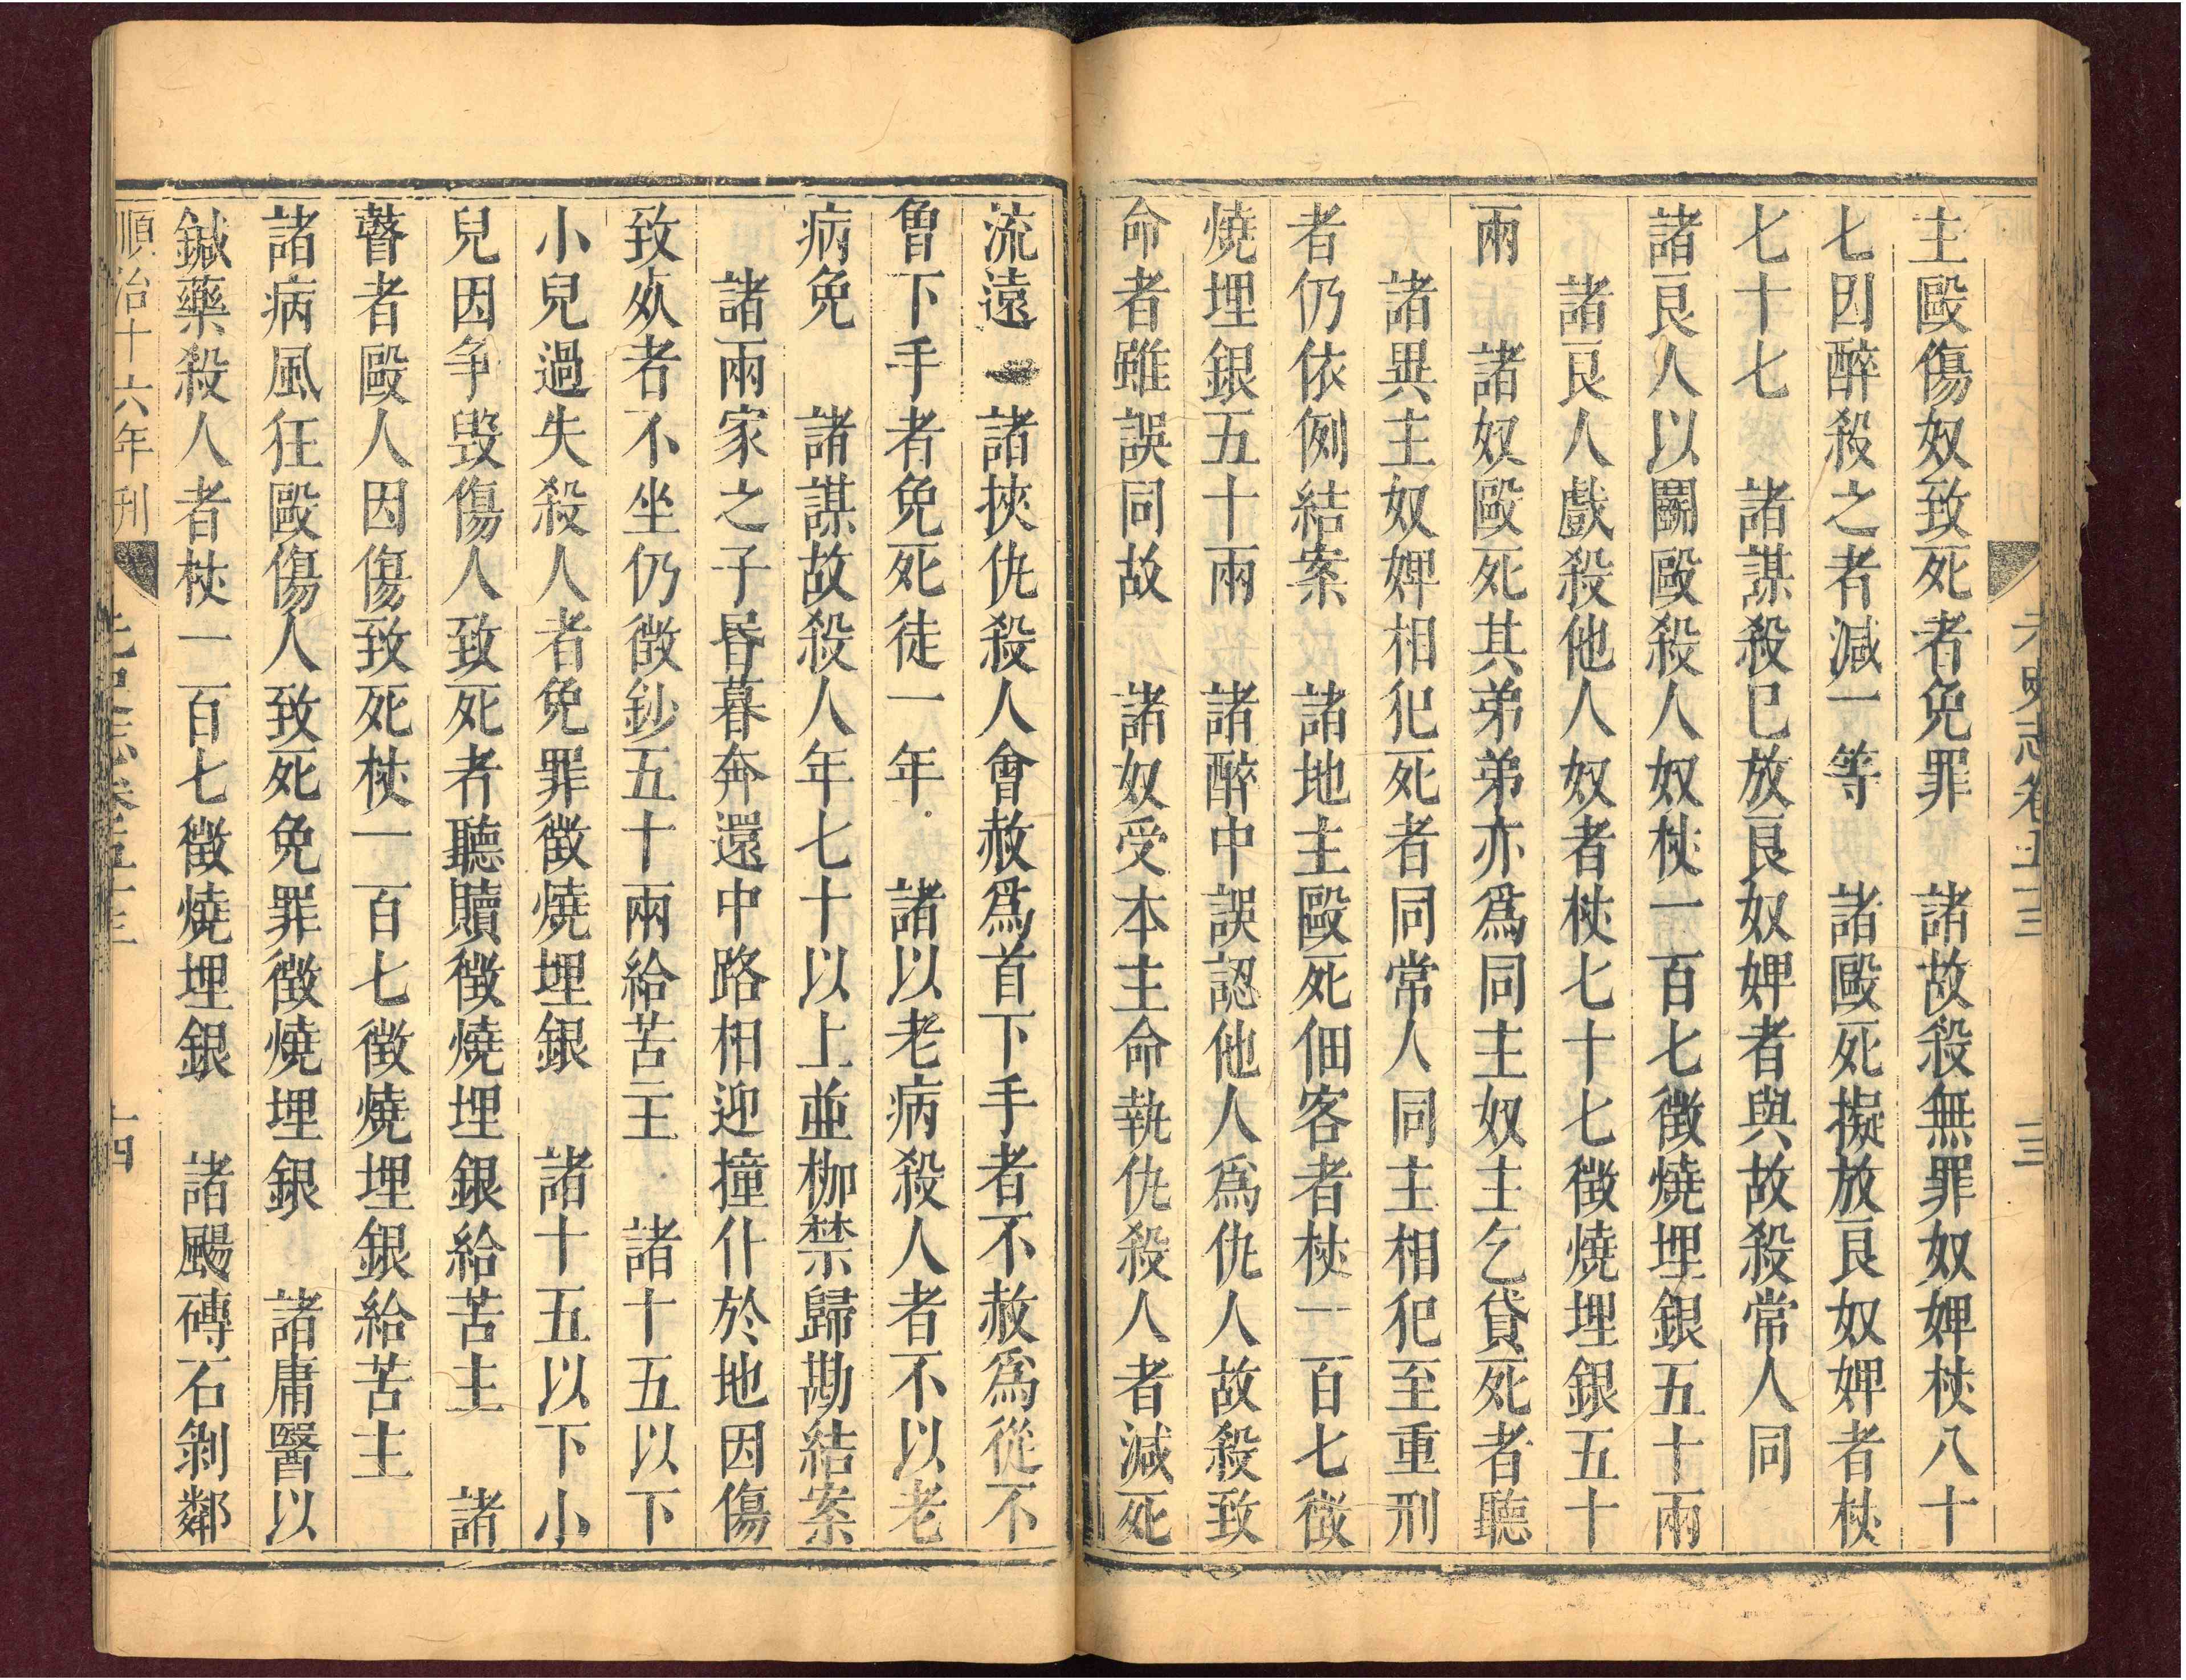 元史志卷五十三 三
主毆傷奴致死者免罪　諸故殺無罪奴婢杖八十
七因醉殺之者減一等　諸毆死擬放良奴婢者杖
七十七　諸謀殺已放良奴婢者與故殺常人同
諸良人以鬬毆殺人奴杖一百七徵燒埋銀五十兩
諸良人戲殺他人奴者杖七十七徵燒埋銀五十
兩　諸奴毆死其弟弟亦爲同主奴主乞貸死者聽
諸異主奴婢相犯死者同常人同主相犯至重刑
者仍依例結案　諸地主毆死佃客者杖一百七徵
燒埋銀五十兩　諸醉中誤認他人爲仇人故殺致
命者雖誤同故　諸奴受本主命執仇殺人者減死
流遠　諸挾仇殺人會赦爲首下手者不赦爲從不
曾下手者免死徒一年　諸以老病殺人者不以老
病免　諸謀故殺人年七十以上並枷禁歸勘結案
諸兩家之子昏暮奔還中路相迎撞仆於地因傷
致死者不坐仍徵鈔五十兩給苦主　諸十五以下
小兒過失殺人者免罪徵燒埋銀　諸十五以下小
兒因争毁傷人致死者聽贖徵燒埋銀給苦主　諸
瞽者毆人因傷致死杖一百七徵燒埋銀給苦主
諸病風狂毆傷人致死免罪徵燒埋銀　諸庸醫以
鍼藥殺人者杖一百七徵燒埋銀　諸颺磚石剝鄰
順治十六年刊 元史志卷五十三 十四